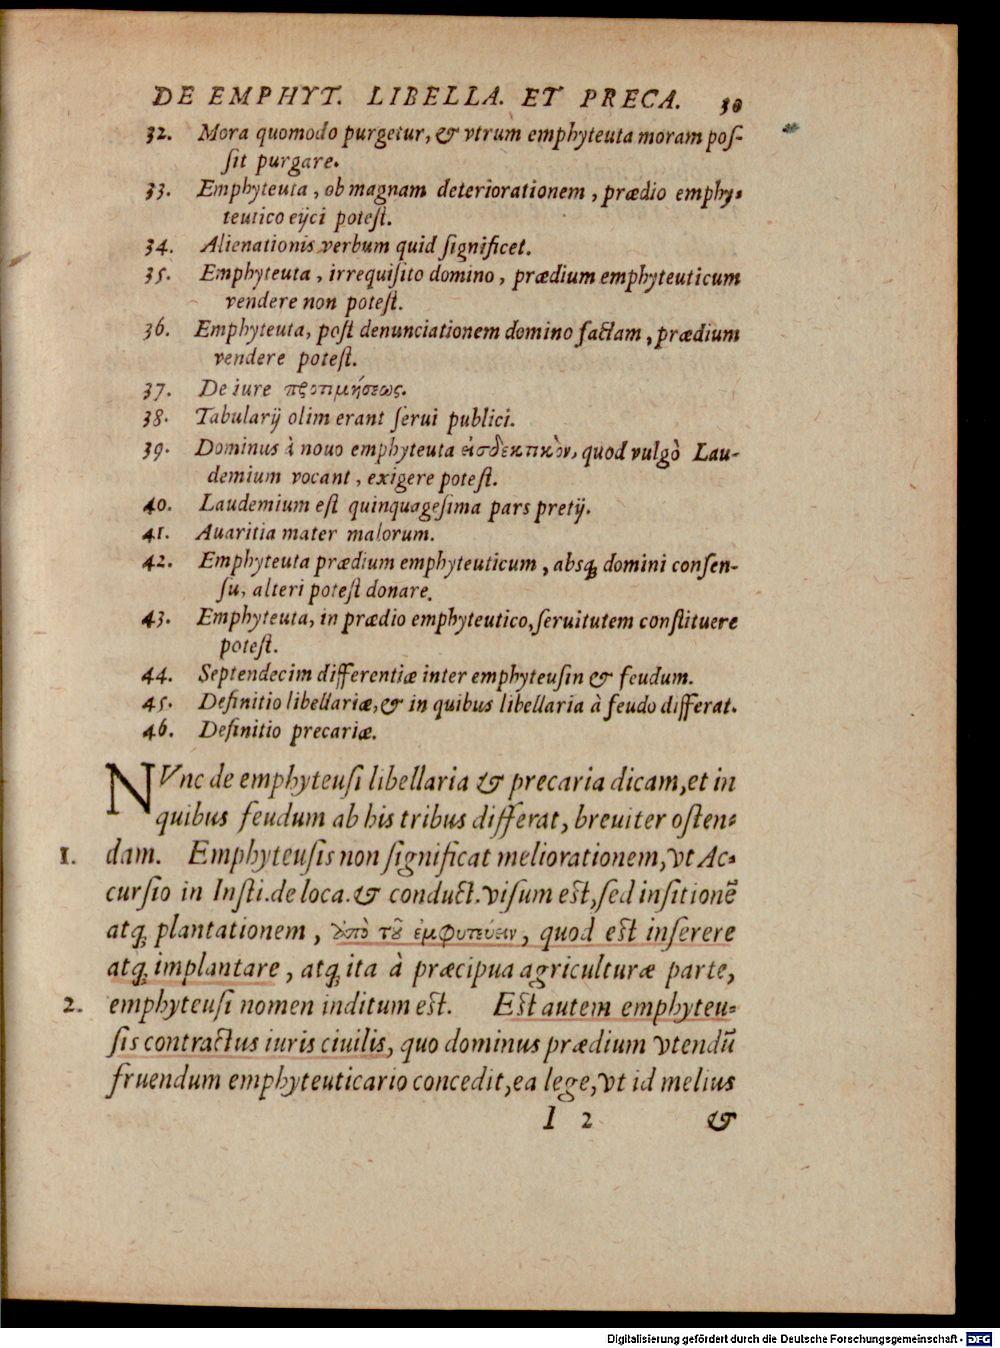 DE EMPHYT. LIBELLA. ET PRECA. 30
32. Mora quomodo purgetur, & vtrum emphyteuta moram pos-
sit purgare.
33. Emphyteuta, ob magnam deteriorationem, prædio emphy-
teutico eijci potest.
34. Alienationis verbum quid significet.
35. Emphyteuta, irrequisito domino, prædium emphyteuticum
vendere non potest.
36. Emphyteuta, post denunciationem domino factam, prædium
vendere potest.
37. De iure προτιμήσεως.
38. Tabularij olim erant serui publici.
39. Dominus à nouo emphyteuta εἰσδεκτικὸν, quod vulgò Lau-
demium vocant, exigere potest.
40. Laudemium est quinquagesima pars pretij.
41. Auaritia mater malorum.
42. Emphyteuta prædium emphyteuticum, absq; domini consen-
su, alteri potest donare.
43. Emphyteuta, in prædio emphyteutico, seruitutem constituere
potest.
44. Septendecim differentiæ inter emphyteusin & feudum.
45. Definitio libellariæ, & in quibus libellaria à feudo differat.
46. Definitio precariæ.
NVnc de emphyteusi libellaria & precaria dicam, et in
quibus feudum ab his tribus differat, breuiter osten-
1. dam. Emphyteusis non significat meliorationem, vt Ac-
cursio in Insti. de loca. & conduct. visum est, sed insitionē
atq; plantationem, ἀπὸ τοῦ ἐμφυτεύειν, quod est inserere
atq; implantare, atq; ita à præcipua agriculturæ parte,
2. emphyteusi nomen inditum est. Est autem emphyteu-
sis contractus iuris ciuilis, quo dominus prædium vtendū
fruendum emphyteuticario concedit, ea lege, vt id melius
I 2 &
Digitalisierung gefördert durch die Deutsche Forschungsgemeinschaft - DFG